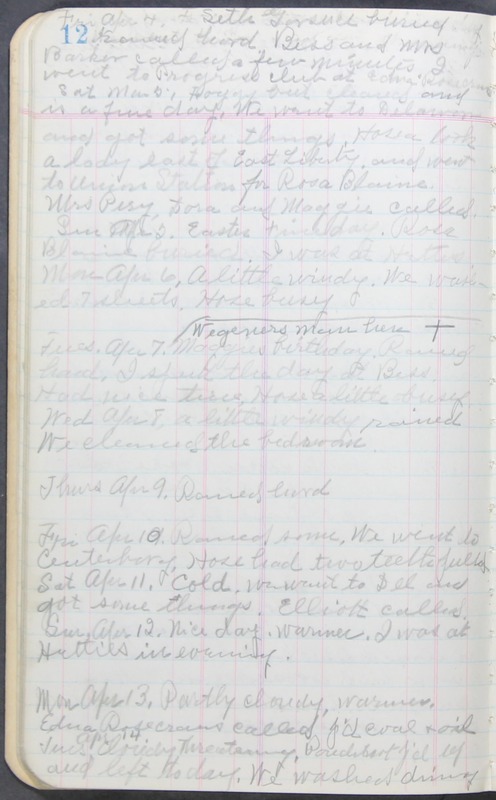 Fri Apr 4. Seth Gorsuch buried
12 Rained hard, Bess and Mrs
Barker called a few minutes. I
went to Progress Club at Edna
Sat Mar 5, Foggy but cleared and
is a fine day. We went to Delaware
and got some things. Hosea took
a lady east of East Liberty, and went
to Union Station for Rosa Blaine.
Mrs Pusy, Dora and Maggie called.
Sun Apr 5. Easter Fine day. Rose
Blaine buried. I was at Hatties
Mon Apr 6, A little windy. We wash-
ed 7 sheets. Hose busy
Wegeners man here +
Tues. Apr 7. Maggies birthday. Rained
hard, I spent the day at Bess.
Had nice time, Hose a little busy.
Wed Apr 8, a little windy, rained
We cleaned the bedroom
Thurs Apr 9. Rained hard
Fri Apr 10. Rained some. We went to
Centerburg, Hose had two teeth pulled
Sat Apr 11. Cold. We went to Del and
got some things. Elliott called.
Sun, Apr 12. Nice day. warmer. I was at
Hatties in evening.
Mon Apr 13, Partly cloudy, warmer.
Edna Rosecrans called, p'd coal & oil
Tues. Apr 14. Cloudy threatening, p'd up
and left to day. We washed dining